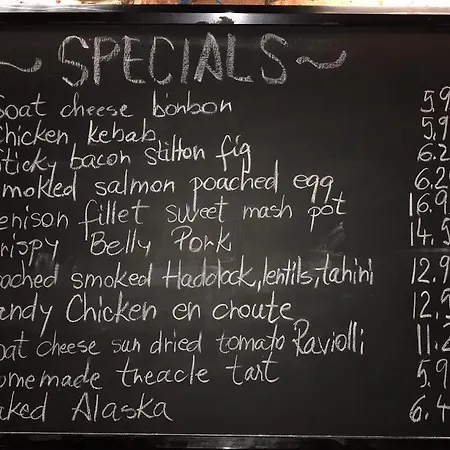 ~ SPECIALS ~
oat cheese bonbon 5.9
hicken kebab 5.9
ticky bacon stilton fig 6.2
moked salmon poached egg 6.2
enison fillet sweet mash pot 16.9
rispy Belly Pork 14.5
ached smoked Haddock, lentils, tahini 12.9
andy Chicken en croute 12.9
oat cheese sun dried tomato Raviolli 11.2
omemade treacle tart 5.9
aked Alaska 6.4